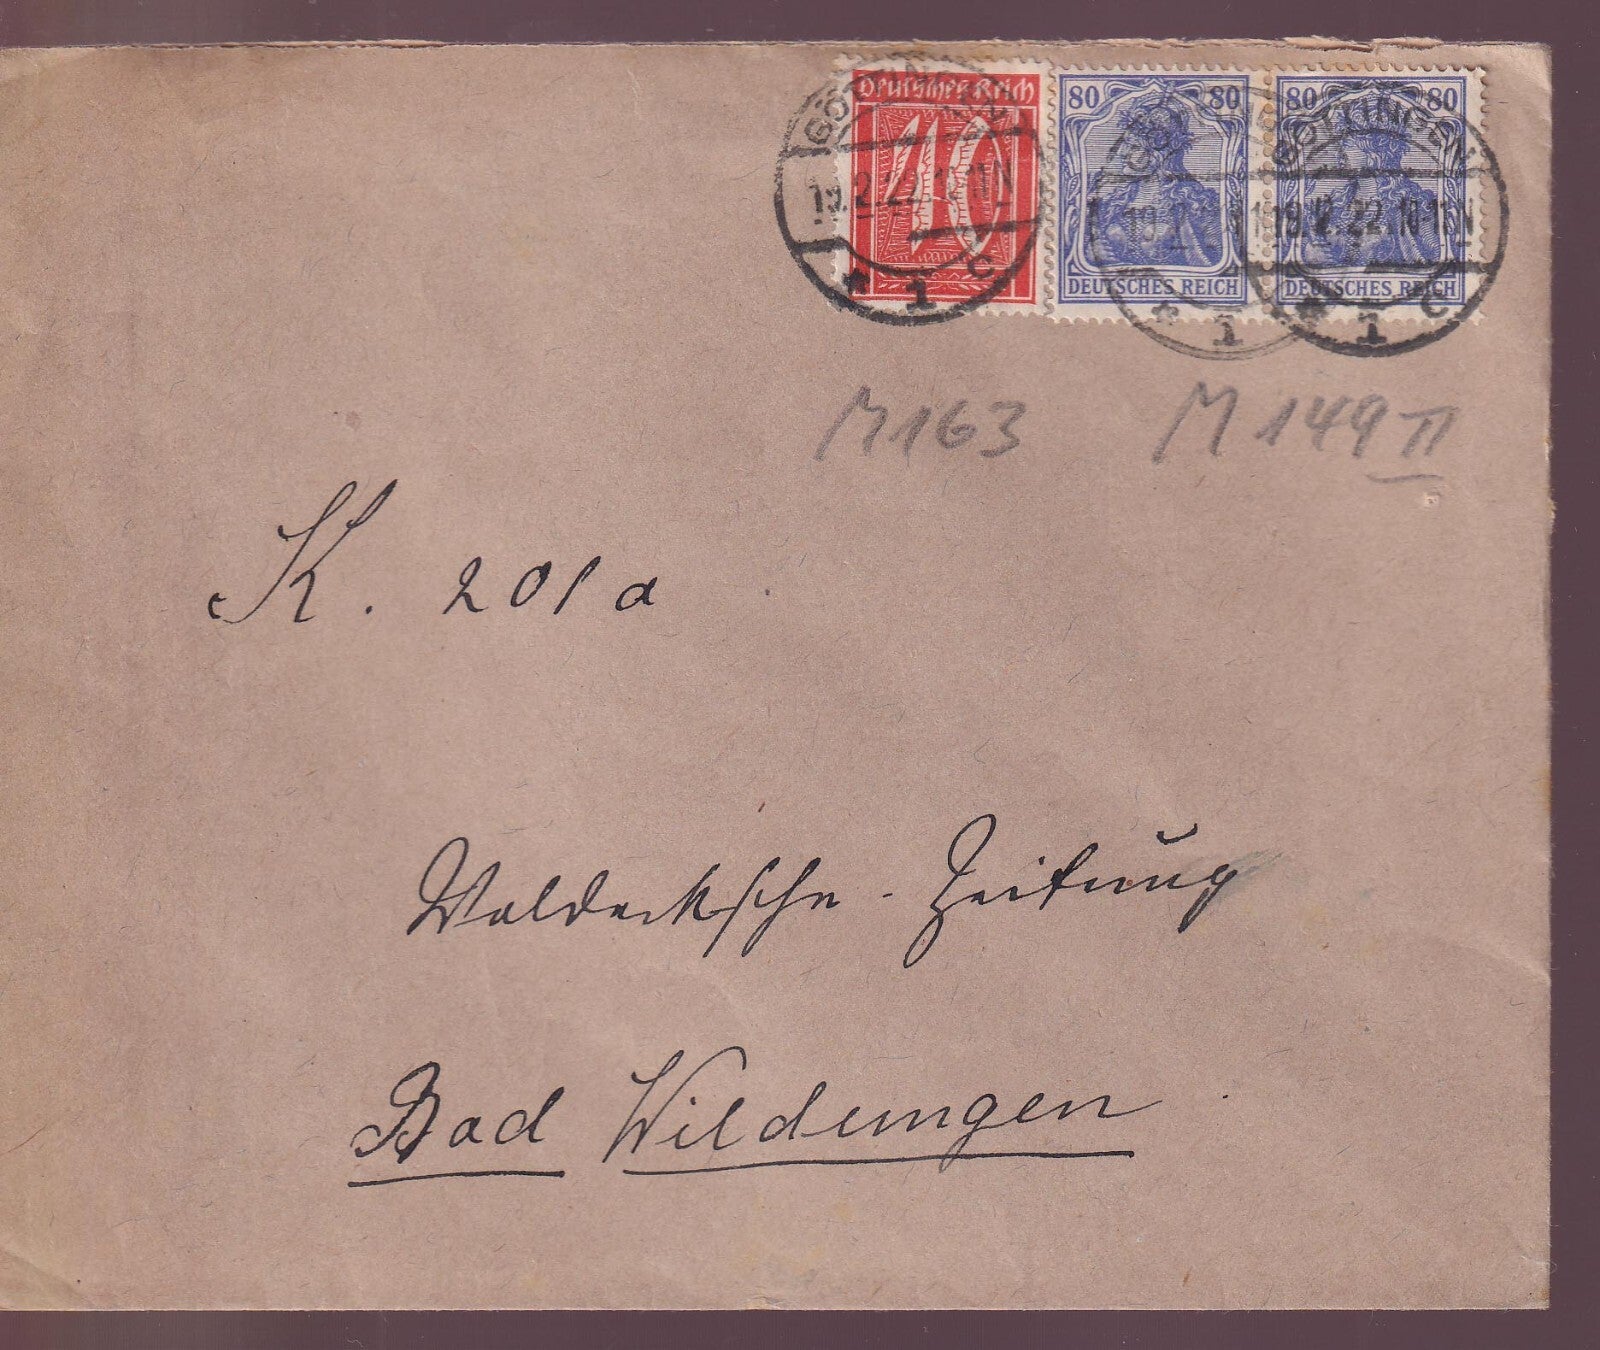 Deutsches Reich
40
80 80
DEUTSCHES REICH
80 80
DEUTSCHES REICH
GÖTTINGEN
19.2.22.10-11N
* 1 c
19.2.
* 1
GÖTTINGEN
19.2.22.10-11N
* 1 c
M163 M149 II
K. 201a
Waldecksche-Zeitung
Bad Wildungen